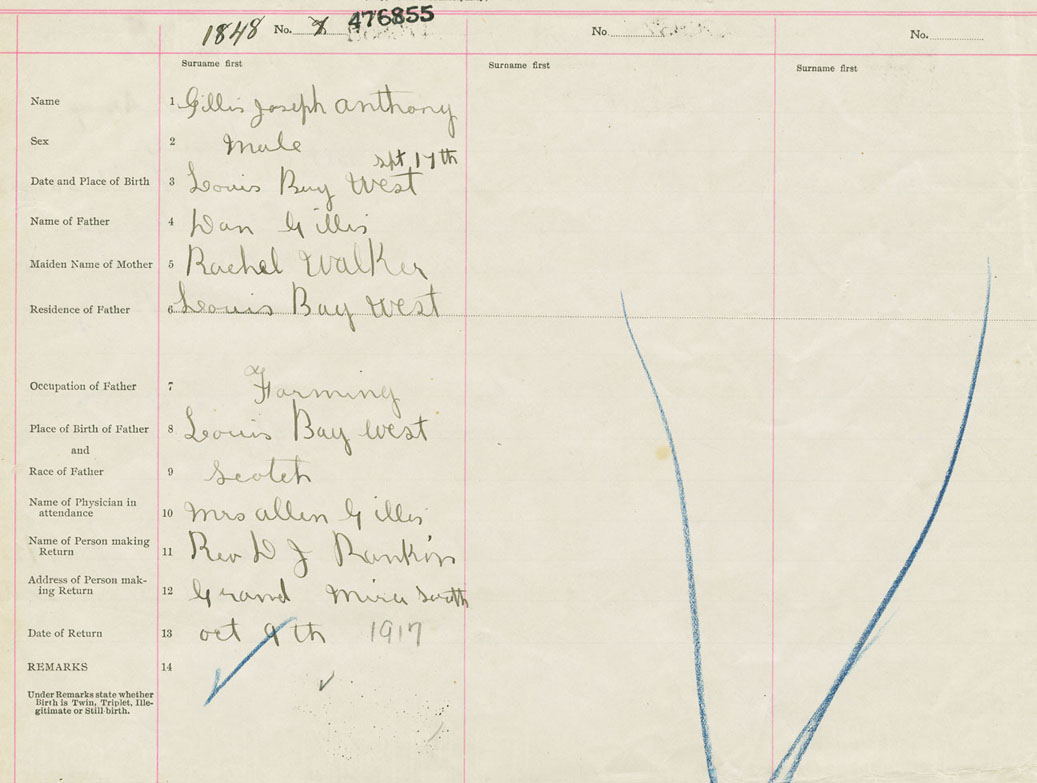 1848 No. 476855 No. No.
Surname first Surname first Surname first
Name 1 Gillis Joseph Anthony
Sex 2 Male
Spt 17th
Date and Place of Birth 3 Louis Bay West
Name of Father 4 Dan Gillis
Maiden Name of Mother 5 Rachel Walker
Residence of Father 6 Louis Bay West
Occupation of Father 7 Farming
Place of Birth of Father 8 Louis Bay West
and
Race of Father 9 Scotch
Name of Physician in
attendance 10 Mrs Allen Gillis
Name of Person making
Return 11 Rev D J Rankin
Address of Person mak-
ing Return 12 Grand Mira South
Date of Return 13 Oct 9th 1917
REMARKS 14
Under Remarks state whether
Birth is Twin, Triplet, Ille-
gitimate or Still-birth.